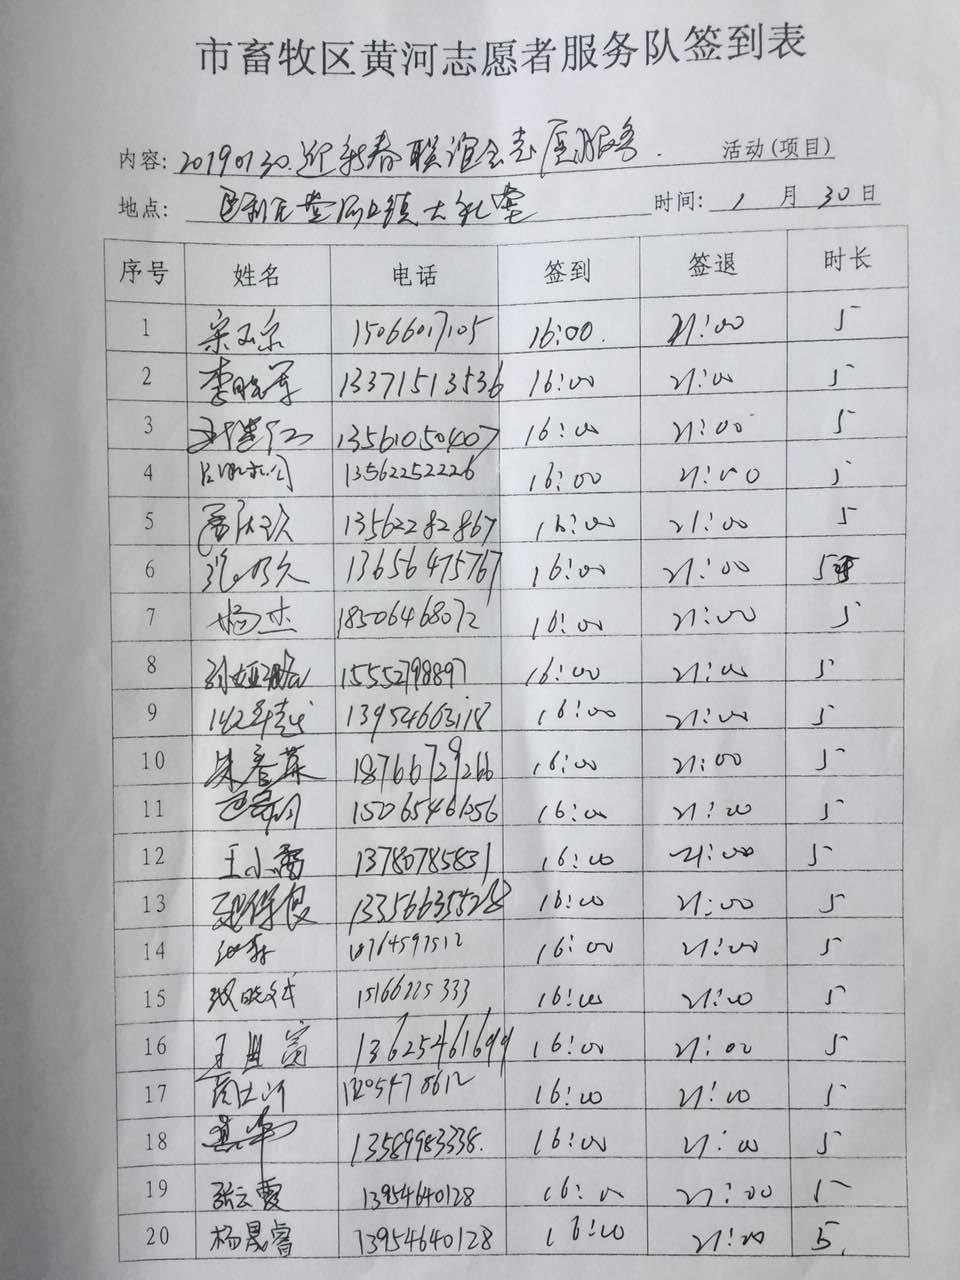 市畜牧区黄河志愿者服务队签到表
内容: 20190130.迎新春联谊会志愿服务. 活动(项目)
地点: 大礼堂 时间: 1 月 30 日
序号 姓名 电话 签到 签退 时长
1 宋玉东 15066017105 16:00. 21:00 5
2 李晓军 13371513536 16:00 21:00 5
3 13561050407 16:00 21:00 5
4 13562252226 16:00 21:00 5
5 13562282867 16:00 21:00 5
6 13656475767 16:00 21:00 5
7 杨杰 18506468072 16:00 21:00 5
8 15552798897 16:00 21:00 5
9 16:00 21:00 5
10 18766729266 16:00 21:00 5
11 15065461056 16:00 21:00 5
12 王小霞 13780785831 16:00 21:00 5
13 16:00 21:00 5
14 16:00 21:00 5
15 15166225333 16:00 21:00 5
16 13625461699 16:00 21:00 5
17 16:00 21:00 5
18 13589983338. 16:00 21:00 5
19 张云霞 13954640128 16:00 21:00 5
20 杨晟睿 13954640128 16:00 21:00 5.